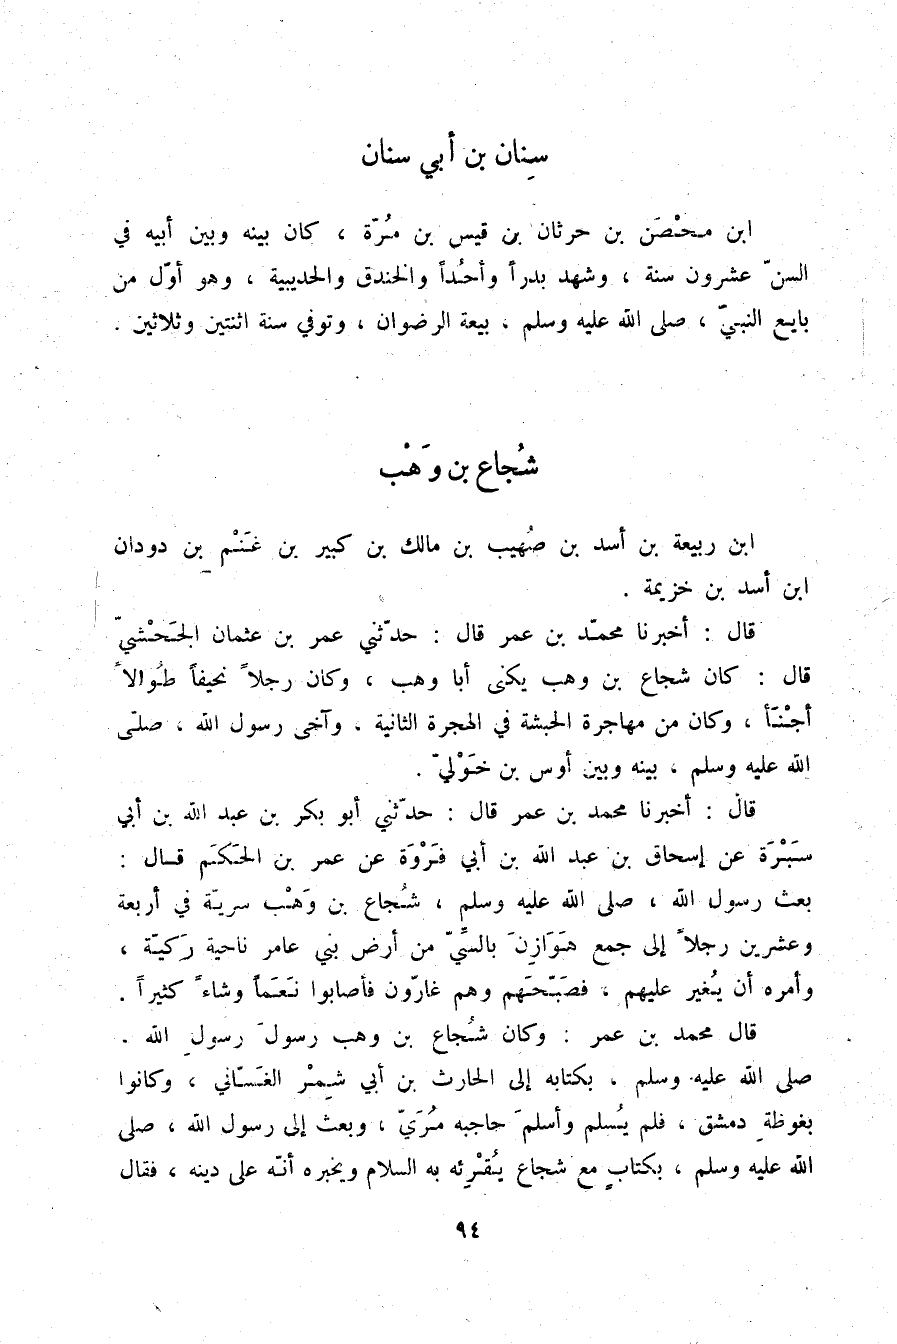 سِنان بن أبي سنان
ابن محْصَن بن حرثان بن قيس بن مُرّة ، كان بينه وبين أبيه في
السنّ عشرون سنة ، وشهد بدراً وأحُداً والخندق والحديبية ، وهو أوّل من
بايع النبيّ ، صلى الله عليه وسلم ، بيعة الرضوان ، وتوفي سنة اثنتين وثلاثين .
شُجاع بن وَهْب
ابن ربيعة بن أسد بن صُهيب بن مالك بن كبير بن غَنْم بن دودان
ابن أسد بن خزيمة .
قال : أخبرنا محمّد بن عمر قال : حدّثني عمر بن عثمان الجَحْشيّ
قال : كان شجاع بن وهب يكنى أبا وهب ، وكان رجلاً نحيفاً طُوالاً
أجْنَأ ، وكان من مهاجرة الحبشة في الهجرة الثانية . وآخى رسول الله ، صلّى
الله عليه وسلم ، بينه وبين أوس بن خَوْليّ .
قال : أخبرنا محمد بن عمر قال : حدّثني أبو بكر بن عبد الله بن أبي
سَبْرَة عن إسحاق بن عبد الله بن أبي فَرْوَة عن عمر بن الحَكَم قال :
بعث رسول الله ، صلى الله عليه وسلم ، شُجاع بن وَهْب سريّة في أربعة
وعشرين رجلاً إلى جمع هَوَازِنَ بالسِّيّ من أرض بني عامر ناحية رَكيّة ،
وأمره أن يُغير عليهم ، فصَبّحَهم وهم غارّون فأصابوا نَعَماً وشاءً كثيراً .
قال محمد بن عمر : وكان شُجاع بن وهب رسولَ رسولِ الله .
صلى الله عليه وسلم . بكتابه إلى الحارث بن أبي شِمْر الغَسّاني ، وكانوا
بغوظةِ دمشق ، فلم يُسلم وأسلمَ حاجبه مُرَيّ ، وبعث إلى رسول الله ، صلى
الله عليه وسلم ، بكتابٍ مع شجاع يُقْرِئه به السلام ويخبره أنّه على دينه ، فقال
٩٤